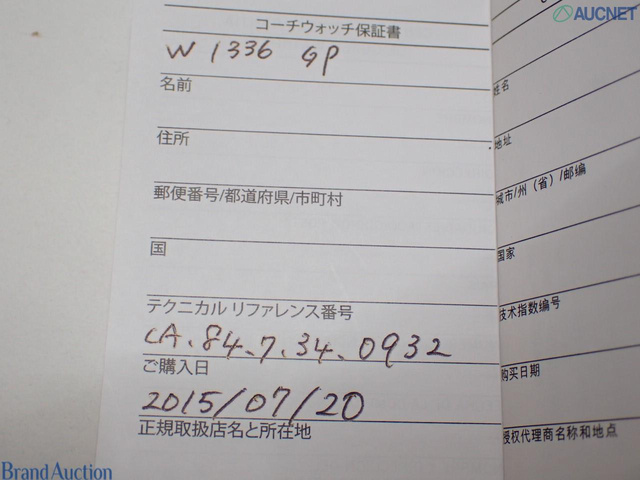 AUCNET
コーチウォッチ保証書
W 1336 GP
名前
住所
郵便番号/都道府県/市町村
国
テクニカル リファレンス番号
CA.84.7.34.0932
ご購入日
2015/07/20
正規取扱店名と所在地
姓名
地址
城市/州（省）/邮编
国家
技术指数编号
购买日期
授权代理商名称和地点
Brand Auction